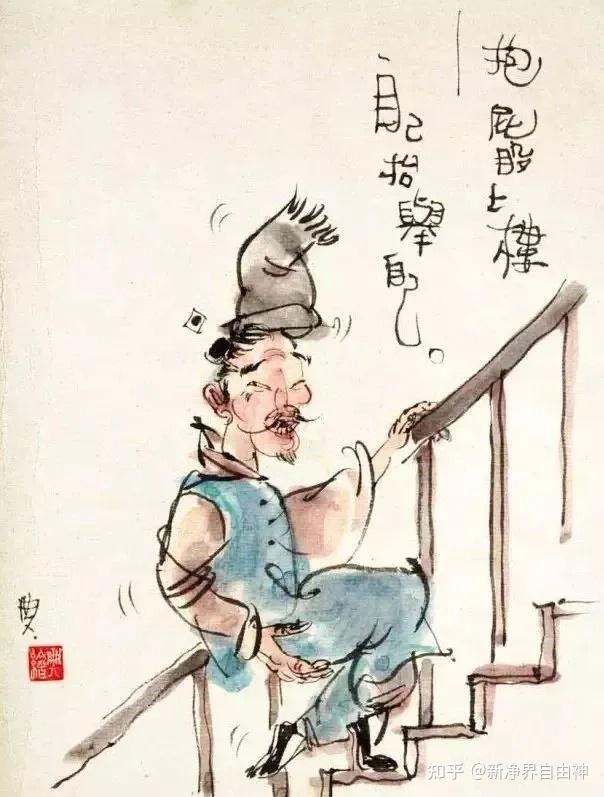 抱屁股上樓
——
自己抬舉自己。
知乎 @新净界自由神